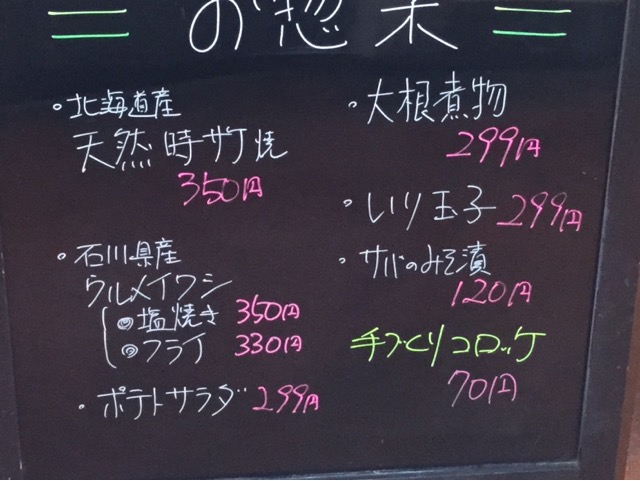 の惣菜
・北海道産
天然時サケ焼
350円
・石川県産
ウルメイワシ
◎塩焼き 350円
◎フライ 330円
・ポテトサラダ 299円
・大根煮物
299円
・いり玉子 299円
・サバのみそ漬
120円
手づくりコロッケ
70円